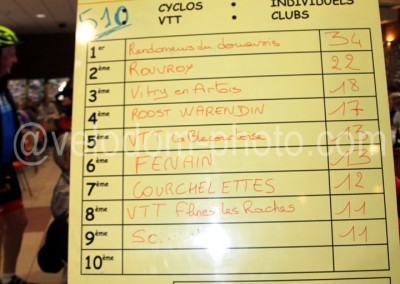 510
CYCLOS • INDIVIDUELS
VTT • CLUBS
1er Randonneurs du douaisis 34
2ème ROUVROY 22
3ème Vitry en Artois 18
4ème ROOST WARENDIN 17
5ème VTT 13
6ème FENAIN 13
7ème COURCHELETTES 12
8ème VTT Flines les Raches 11
9ème Sc 11
10ème
@velodomphoto.com